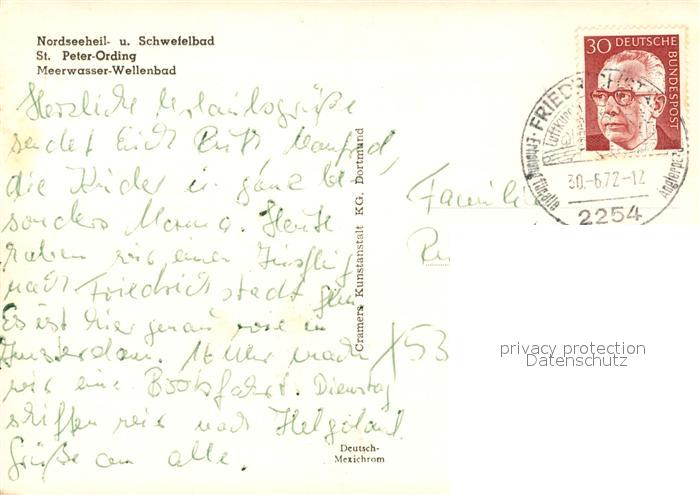 Nordseeheil- u. Schwefelbad
St. Peter-Ording
Meerwasser-Wellenbad
Herzliche Urlaubsgrüße
sendet Euch Ruth, Manfred,
die Kinder u. ganz be-
sonders Mama. Heute
haben wir einen Ausflug
nach Friedrichstadt gem.
Es ist hier genau wie in
Amsterdam. 16 Uhr mach
wir eine Bootsfahrt. Dienstag
schiffen wir nach Helgoland
Grüße an alle.
Cramers Kunstanstalt KG. Dortmund
Deutsch-
Mexichrom
30 DEUTSCHE
BUNDESPOST
Luftkur
Erholung
30.-6.72-12
2254
Familie
53
privacy protection
Datenschutz